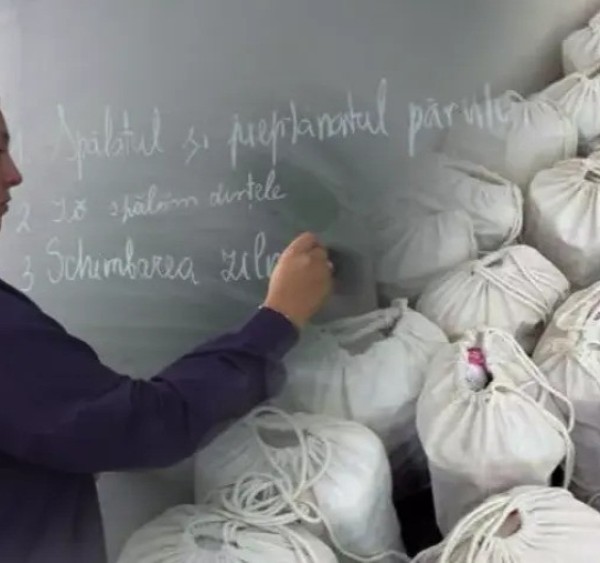 1. Spălatul și pieptănatul părului
2 Să spălăm dințele
3 Schimbarea ziln